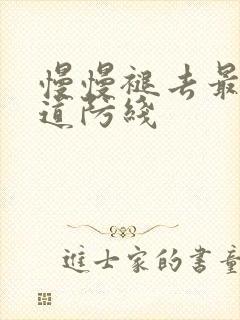 慢慢褪去最
道防线
进士家的书童